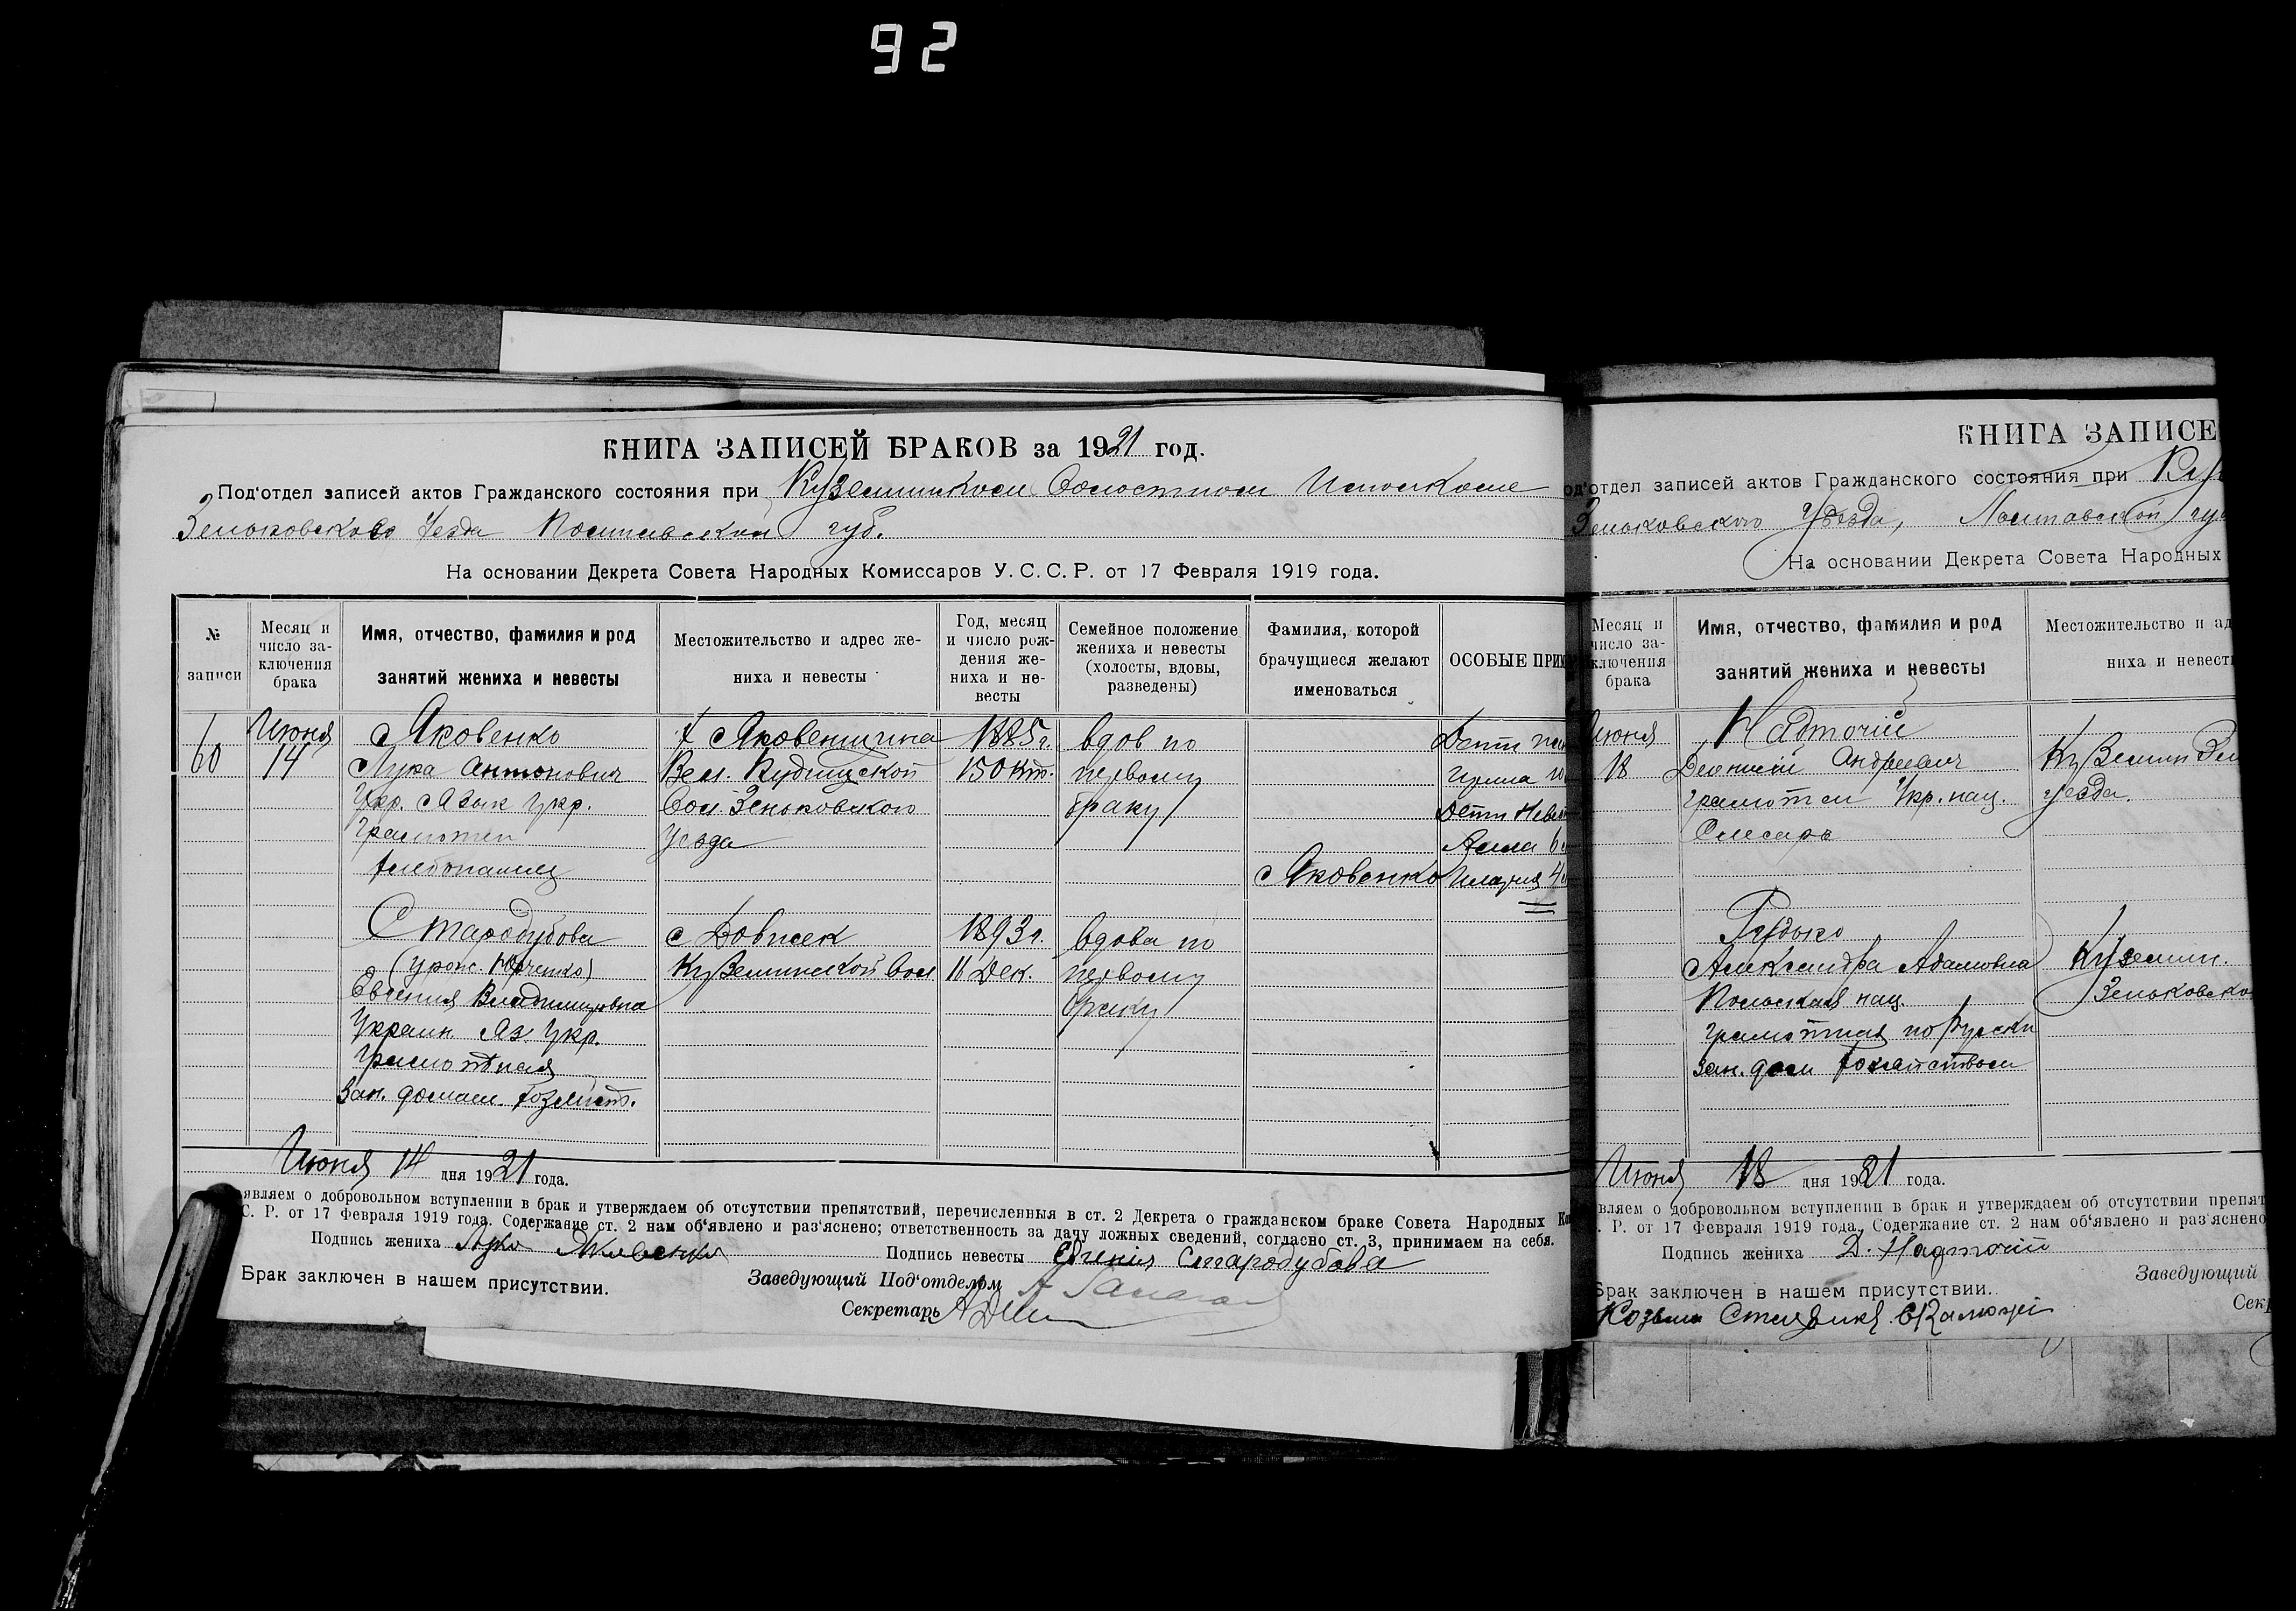 92
КНИГА ЗАПИСЕЙ БРАКОВ за 1921 год.
Под'отдел записей актов Гражданского состояния при Куземинском Волостном Исполкоме
Зеньковского Уезда Полтавской губ.
На основании Декрета Совета Народных Комиссаров У.С.С.Р. от 17 Февраля 1919 года.
№ записи
Месяц и число заключения брака
Имя, отчество, фамилия и род занятий жениха и невесты
Местожительство и адрес жениха и невесты
Год, месяц и число рождения жениха и невесты
Семейное положение жениха и невесты (холосты, вдовы, разведены)
Фамилия, которой брачущиеся желают именоваться
ОСОБЫЕ ПРИМ
60
Июня
14
Яковенко
Лука Антонович
Укр. Язык Укр.
Грамотен
хлебопашец
х Яковенщина
Вел. Будищской
Вол. Зеньковского
Уезда
1885 г.
15 Окт.
вдов по
первому
браку
Яковенко
Дети
Дети
6
4
Стародубова
(урож. Юрченко)
Евгения Владимировна
Украин. Яз. Укр.
Грамотная
Зан. домаш. хозяйст.
с Довжек
Куземинской Вол
1893 г.
11 Дек.
вдова по
первому
браку
Июня 14 дня 1921 года.
являем о добровольном вступлении в брак и утверждаем об отсутствии препятствий, перечисленныя в ст. 2 Декрета о гражданском браке Совета Народных
С. Р. от 17 Февраля 1919 года. Содержание ст. 2 нам об'явлено и раз'яснено; ответственность за дачу ложных сведений, согласно ст. 3, принимаем на себя.
Подпись жениха Лука Яковенко Подпись невесты Евгения Стародубова
Брак заключен в нашем присутствии. Заведующий Под'отделом
Секретарь
КНИГА ЗАПИСЕ
од'отдел записей актов Гражданского состояния при Куз
Зеньковского Уезда, Полтавской гу
На основании Декрета Совета Народных
Месяц и число заключения брака
Имя, отчество, фамилия и род занятий жениха и невесты
Местожительство и ад
ниха и невест
Июня
18
Надточий
Андреевич
грамотен Укр. нац.
Слесарь
Куземин Зен
уезда.
Александра Адамовна
Польская нац.
грамотная по Русски
зан. дом хозяйством
Куземин.
Зеньковско
Июня 18 дня 1921 года.
вляем о добровольном вступлении в брак и утверждаем об отсутствии препят
. Р. от 17 Февраля 1919 года. Содержание ст. 2 нам об'явлено и раз'яснено
Подпись жениха Д. Надточий
Заведующий
Брак заключен в нашем присутствии.
Сек